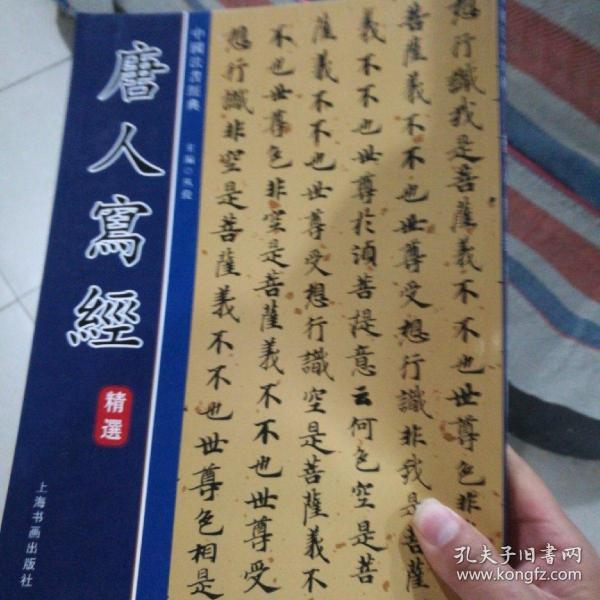 唐人寫經
精選
上海书画出版社
中國法書經典
主編
想行識我是菩薩義不不也世尊色非
菩薩義不不也世尊受想行識非我是菩薩
義不不也世尊於須菩提意云何色空是菩
薩義不不也世尊受想行識空是菩薩義不
不也世尊色非空是菩薩義不不也世尊受
想行識非空是菩薩義不不也世尊色相是
孔夫子旧书网
www.kongfz.com